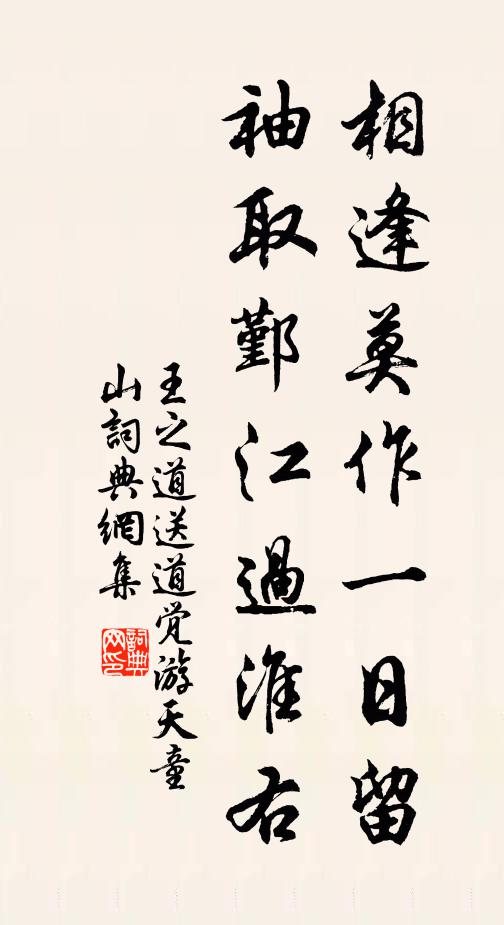 相逢莫作一日留
袖取鄞江過淮右
王之道送道觉游天童
山詞典網集
詞典网印